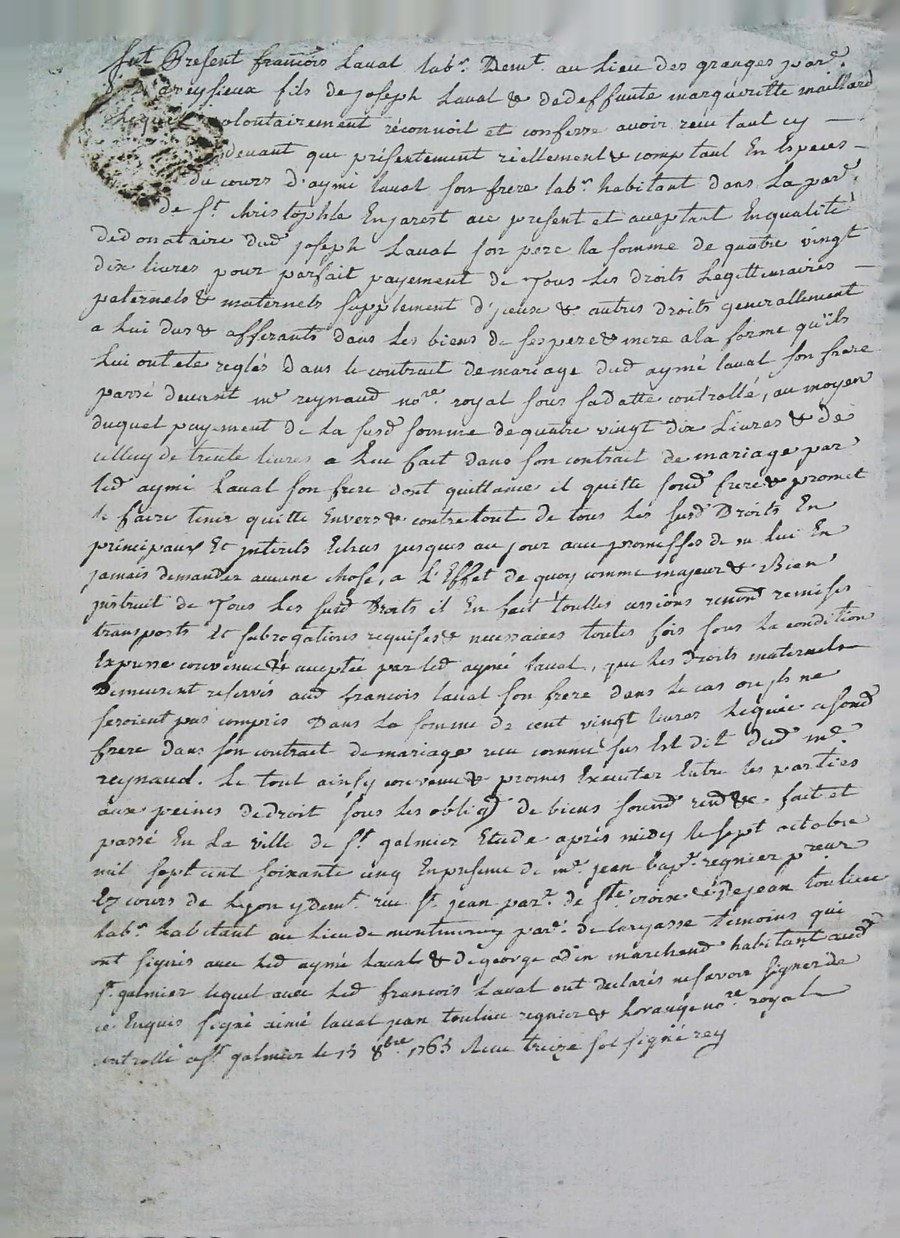 fut Present françois Laval lab.r Dem.t au Lieu des granges par.e
d'aveysieux fils de joseph Laval & dedeffunte margueritte maillard
Lequel volontairement réconnoit et confesse avoir reçu tant cy
devant que présentement réellement & comptant En Especes
du cours d'aymé laval son frere lab.r habitant dans La par.e
de S.t christophle En jarest acc present et acceptant En qualité
dedonataire dud joseph Laval son pere la somme de quatre vingt
dix livres pour parfait payement de Tous Les droits Legittimaires
paternels & maternels supplement d'jceux & autres droits generallement
a Lui dus & afferants dans Les biens de ses pere & mere ala forme qu'ils
Lui ont ete reglés Dans le contrat de mariage dud aymé laval son frere
passé devant m.e reynaud no.re royal sous sa datte controllé, au moyen
duquel payement de La susd somme de quatre vingt dix Livres & de
celluy de trente livres a Lui fait dans son contrat de mariage par
led aymé Laval son frere dont quittance il quitte sond frere & promet
le faire tenir quitte Envers & contre tout de tous Les susd Droits En
principaux Et jnterets Echus jusques au jour avec promesses de ne lui En
jamais demander aucune chose, a L'Effet de quoy comme majeur & Bien
jnstruit de Tous Les susd Droits il En fait toutes cessions renon remises
transports Et subrogations requises & necessaires toutes fois sous La condition
Expresse convenue & acceptée par led aymé laval, que Les droits maternels
Demeurent reservés aud francois laval son frere dans Le cas ou jls ne
seroient pas compris Dans La somme de cent vingt livres Léguée a sond
frere dans son contrat de mariage reçu comme sus Est dit dud m.e
reynaud. Le tout ainsy convenu & promis Executer Entre les parties
aux peines de droit sous Les oblig de biens soumd rend &c. fait et
passé En La ville de S.t galmier Etude après midy le sept octobre
mil sept cent soixante cinq En presence de m.e jean bap.te regnier p.reur
Ez cours de Lyon y Dem.t rue S.t jean par.e de S.te croix & de jean toulieu
lab.r habitant au Lieu de par.e de larajasse temoins qui
ont signés avec Led aymé Laval & de george odin marchand habitant aud
S.t galmier lequel avec Led francois Laval ont declarés ne savoir signer de
ce Enquis signé aimé laval jean toulieu regnier & no.re royal
controllé a S.t galmier le 13 8bre 1765 Reçu treize sol signé rey